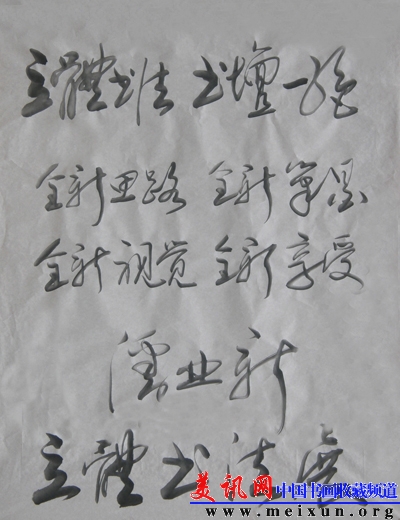 立體书法 书壇一绝
全新思路 全新笔墨
全新视觉 全新享受
业新
立體书法展
美讯网 中国书画收藏频道
www.meixun.org